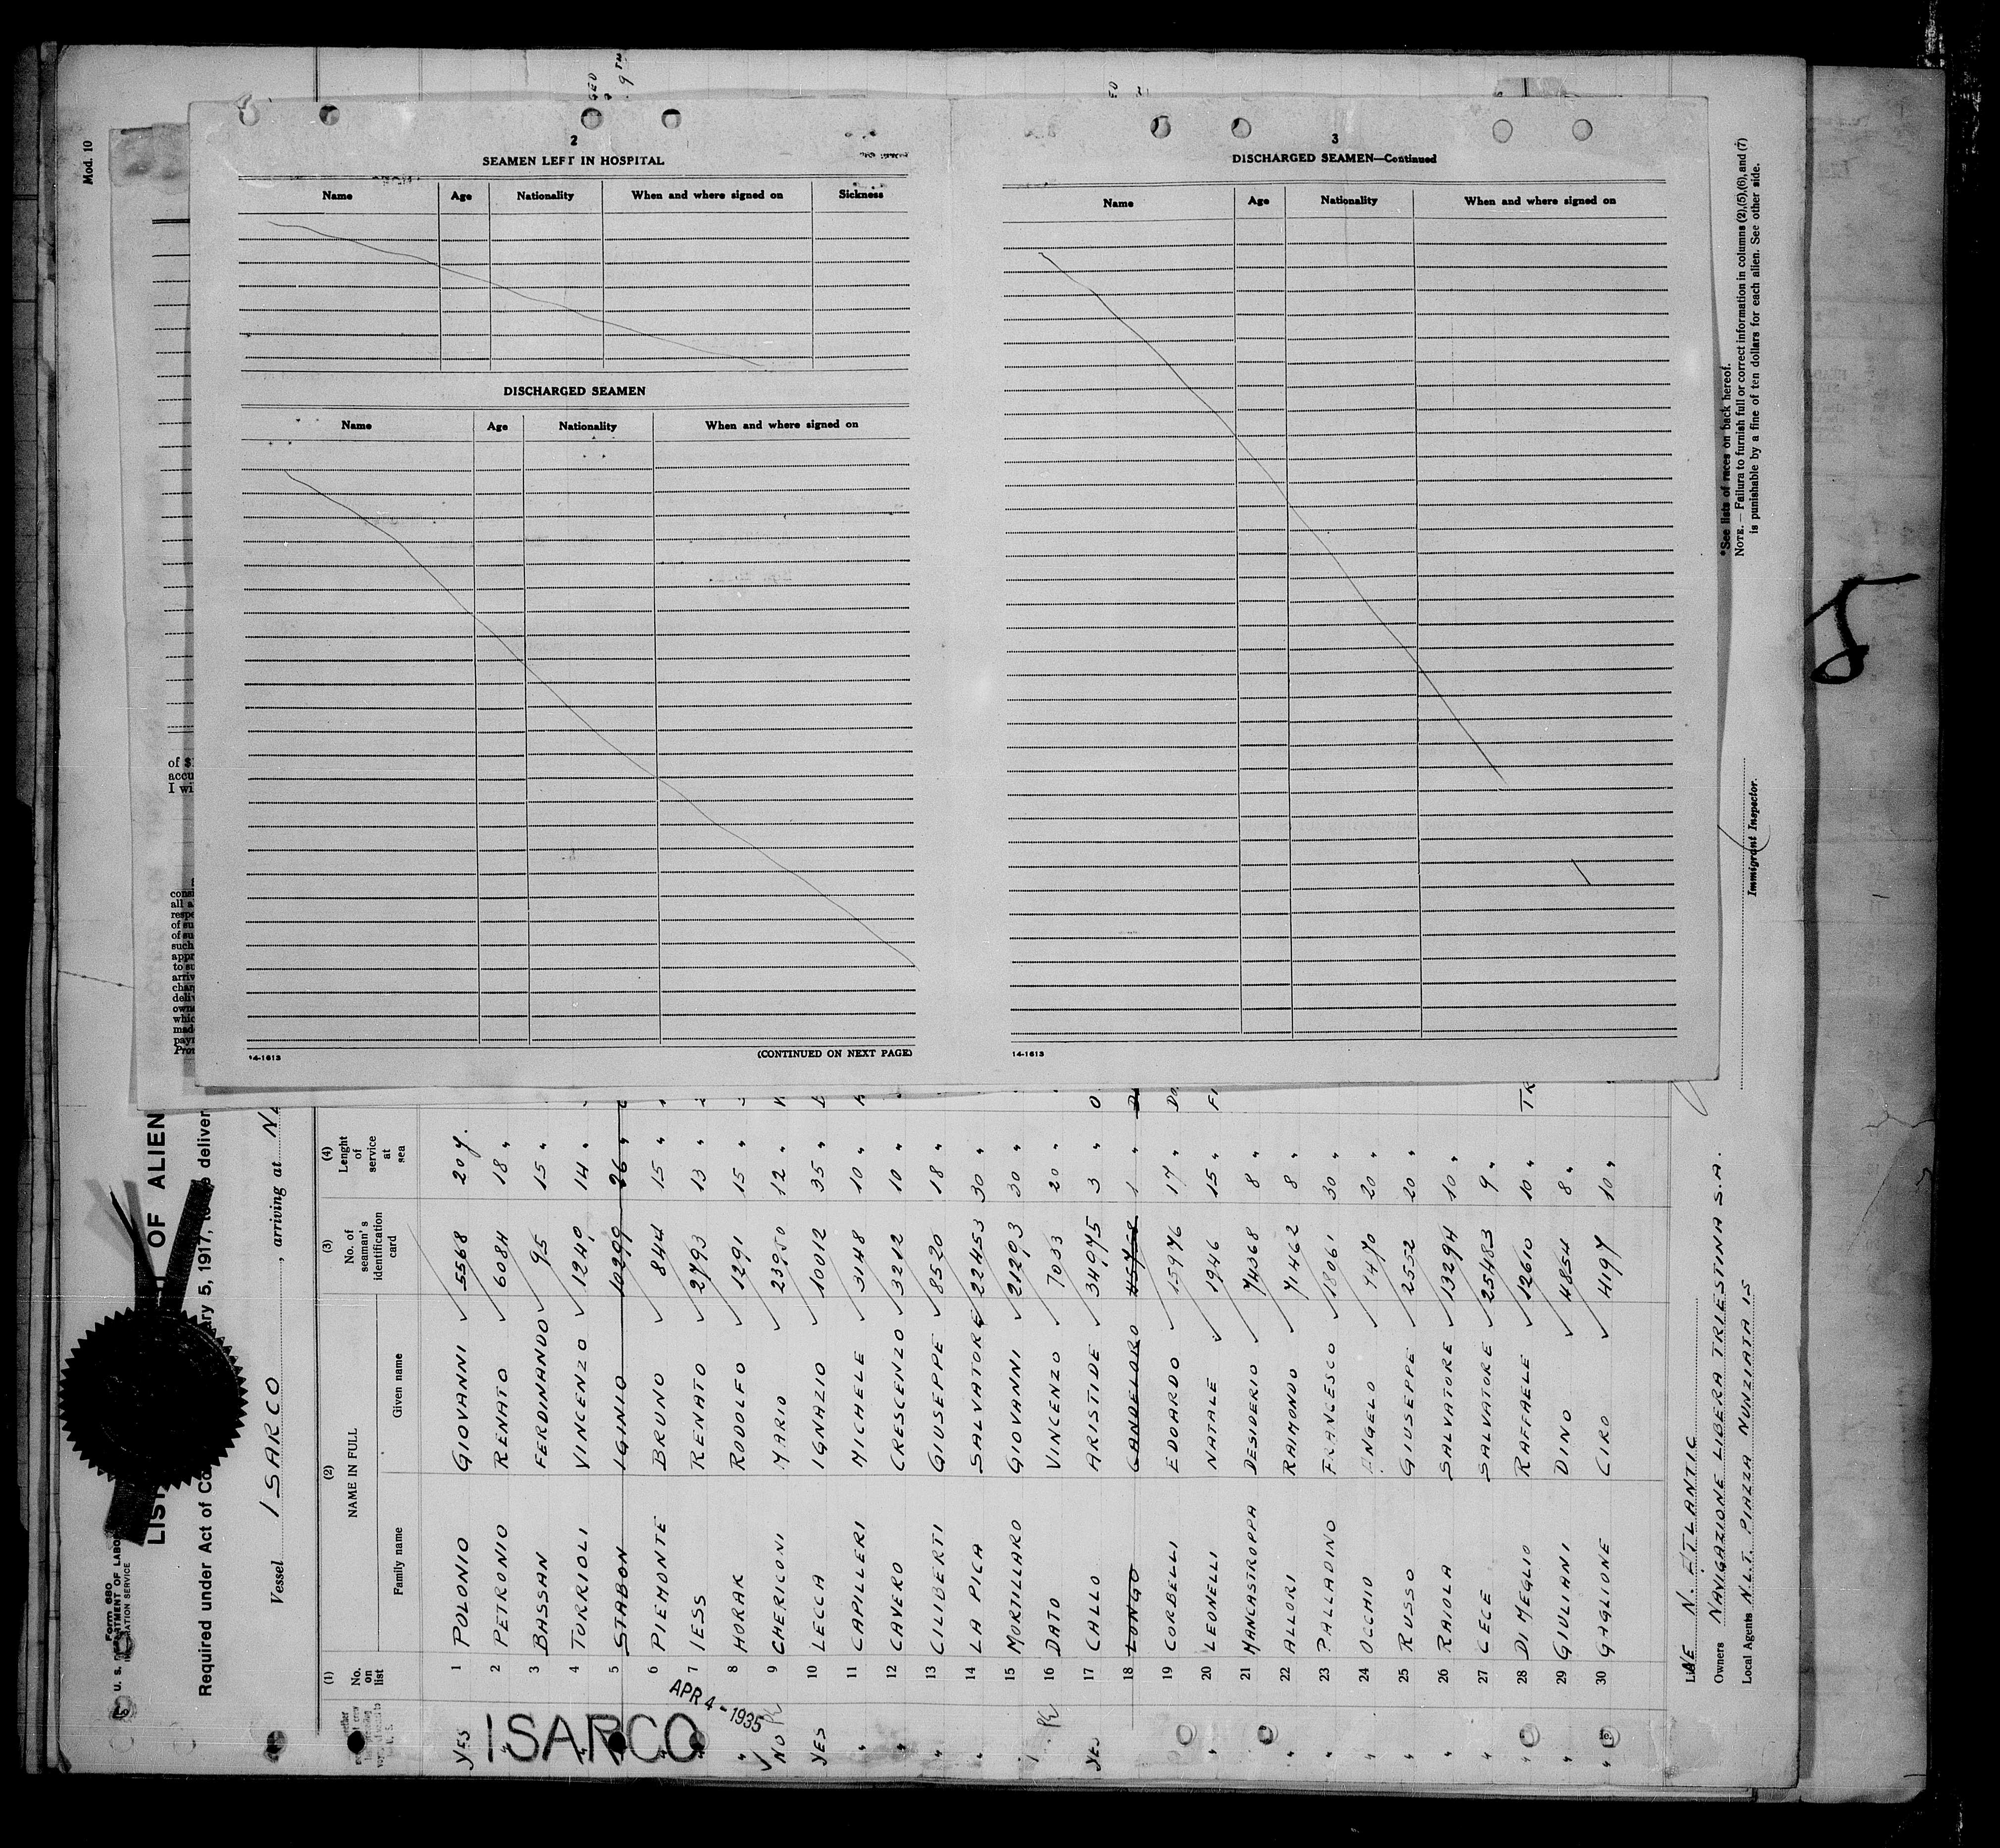 2
SEAMEN LEFT IN HOSPITAL
Name Age Nationality When and where signed on Sickness
DISCHARGED SEAMEN
Name Age Nationality When and where signed on
14-1613
(CONTINUED ON NEXT PAGE)
3
DISCHARGED SEAMEN—Continued
Name Age Nationality When and where signed on
14-1613
Mod. 10
*See lists of races on back hereof.
NOTE. — Failure to furnish full or correct information in columns (2),(5),(6), and (7)
is punishable by a fine of ten dollars for each alien. See other side.
Immigrant Inspector.
5
of $
accu
I wi
cons
all a
resp
of su
of su
such
appr
to su
arriv
char
deliv
own
whic
mad
payr
Prov
Form 680
U. S. DEPARTMENT OF LABO
IMMIGRATION SERVICE
LIST OF ALIEN
Required under Act of Co ary 5, 1917, to be deliver
Vessel ISARCO , arriving at
(1) No. on list
(2) NAME IN FULL
Family name Given name
(3) No. of seaman's identification card
(4) Lenght of service at sea
YES 1 POLONIO GIOVANNI 5568 20 y.
2 PETRONIO RENATO 6084 18 "
3 BASSAN FERDINANDO 95 15 "
4 TURRIOLI VINCENZO 1240 14 "
5 STABON IGINIO 10299 26 "
6 PIEMONTE BRUNO 844 15 "
7 IESS RENATO 2793 13 "
" 8 HORAK RODOLFO 1291 15 "
NO 9 CHERICONI MARIO 23950 12 "
YES 10 LECCA IGNAZIO 10012 35 "
" 11 CAPILLERI MICHELE 3148 10 "
" 12 CAVERO CRESCENZO 3212 10 "
" 13 CILIBERTI GIUSEPPE 8520 18 "
" 14 LA PICA SALVATORE 22453 30 "
15 MORTILLARO GIOVANNI 21293 30 "
16 DATO VINCENZO 7033 20 "
YES 17 CALLO ARISTIDE 34975 3 "
18 LONGO CANDELORO 1 "
19 CORBELLI EDOARDO 15976 17 "
" 20 LEONELLI NATALE 1946 15 "
21 MANCASTROPPA DESIDERIO 74368 8 "
" 22 ALLORI RAIMONDO 71462 8 "
" 23 PALLADINO FRANCESCO 18061 30 "
" 24 OCCHIO ENGELO 7470 20 "
" 25 RUSSO GIUSEPPE 2552 20 "
" 26 RAIOLA SALVATORE 13294 10 "
" 27 CECE SALVATORE 25483 9 "
" 28 DI MEGLIO RAFFAELE 12610 10 "
" 29 GIULIANI DINO 4854 8 "
" 30 GAGLIONE CIRO 4197 10 "
ISARCO
APR 4 - 1935
N. ETLANTIC
Owners NAVIGAZIONE LIBERA TRIESTINA S.A.
Local Agents N.L.T. PIAZZA NUNZIATA 15